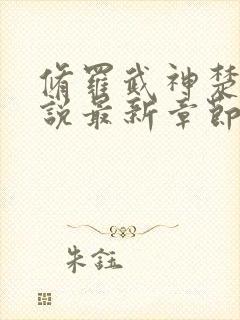 脩羅武神楚
說最新章節
朱鈺